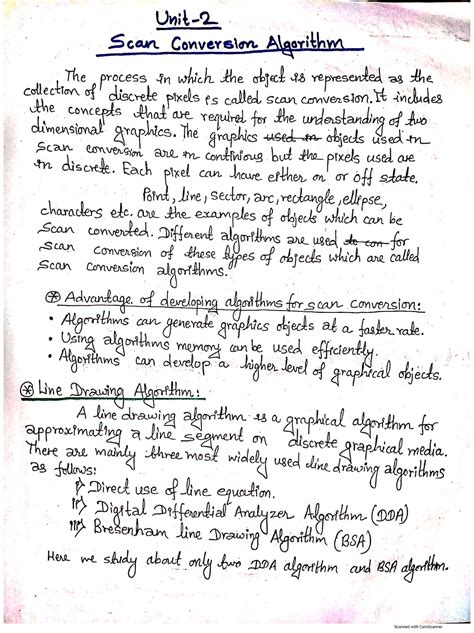 Unit-2
Scan Conversion Algorithm
The process in which the object is represented as the
collection of discrete pixels is called scan conversion. It includes
the concepts that are required for the understanding of two
dimensional graphics. The graphics used in objects used in
scan conversion are in continious but the pixels used are
in discrete. Each pixel can have either on or off state.
Point, line, sector, arc, rectangle, ellipse,
characters etc. are the examples of objects which can be
scan converted. Different algorithms are used to con for
scan conversion of these types of objects which are called
scan conversion algorithms.
* Advantage of developing algorithms for scan conversion:
• Algorithms can generate graphics objects at a faster rate.
• Using algorithms memory can be used efficiently.
• Algorithms can develop a higher level of graphical objects.
* Line Drawing Algorithm:
A line drawing algorithm is a graphical algorithm for
approximating a line segment on discrete graphical media.
There are mainly three most widely used line drawing algorithms
as follows:
i) Direct use of line equation.
ii) Digital Differential Analyzer Algorithm (DDA)
iii) Bresenham line Drawing Algorithm (BSA)
Here we study about only two DDA algorithm and BSA algorithm.
Scanned with CamScanner